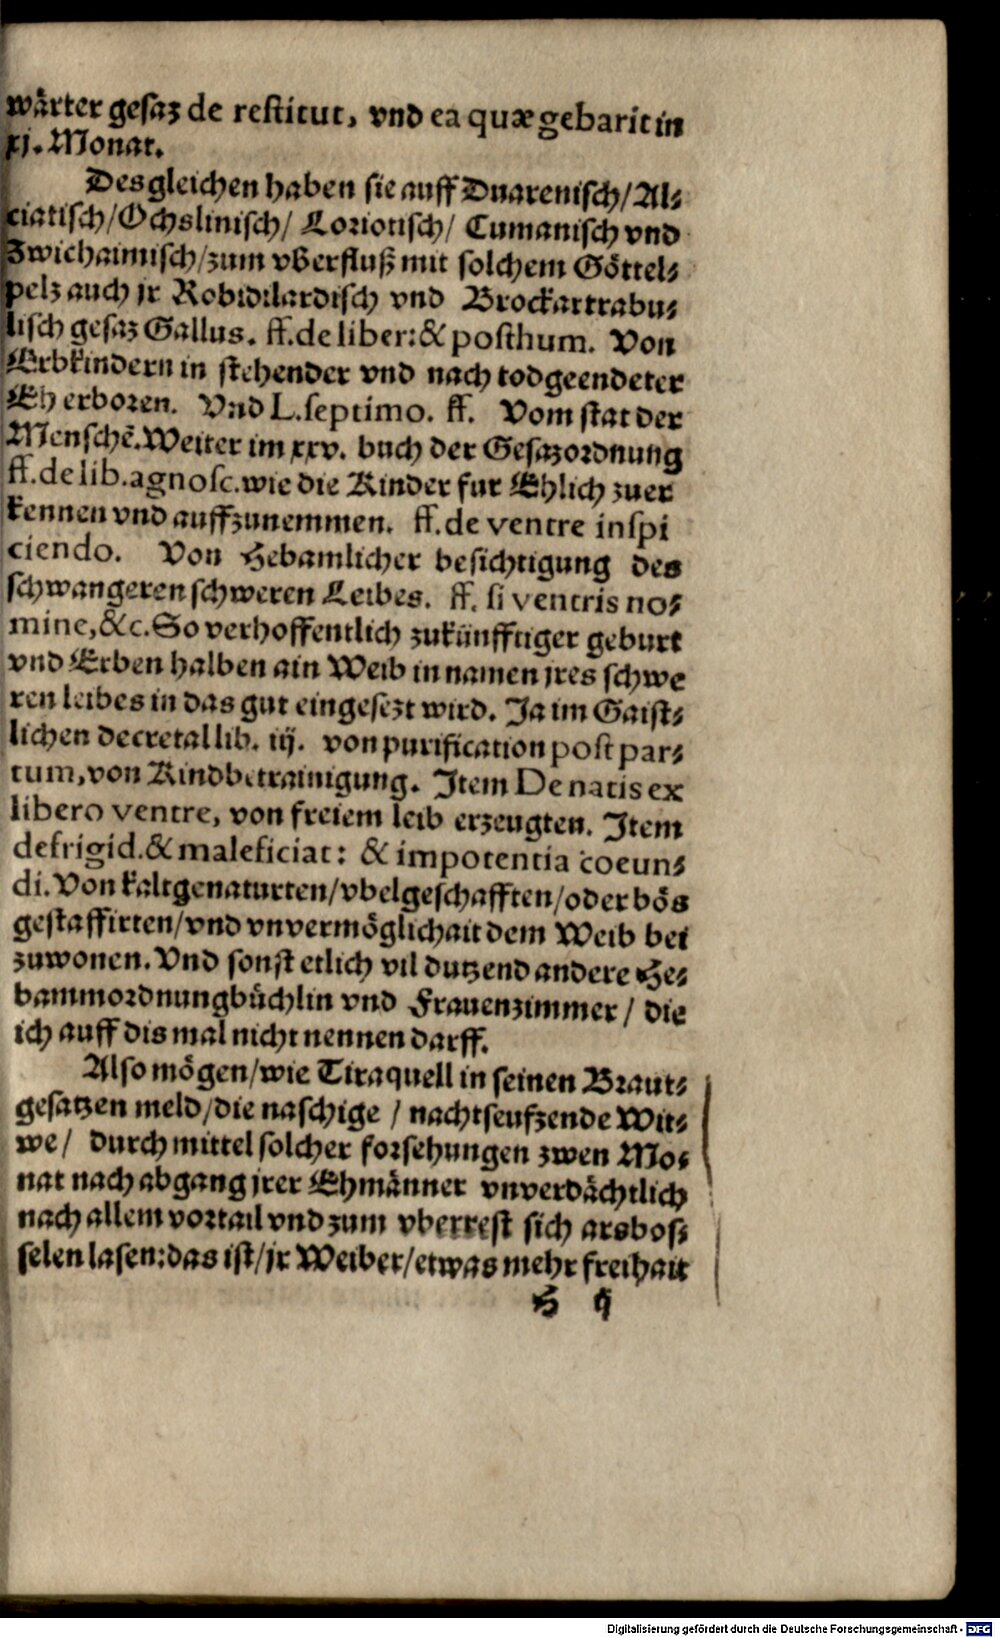 wårter gesaz de restitut, vnd ea quæ gebarit in
xj. Monat.
Desgleichen haben sie auff Duarenisch/Al⸗
ciatisch/Ochslinisch/ Loriotisch/ Cumanisch vnd
Zwichaimisch/zum vberfluß mit solchem Göttel⸗
pelz auch jr Robidilardisch vnd Brockartrabu⸗
lisch gesaz Gallus. ff. de liber: & posthum. Von
Erbkindern in stehender vnd nach todgeendeter
Eh erboren. Vnd L. septimo. ff. Vom stat der
Menschẽ. Weiter im xxv. buch der Gesazordnung
ff. de lib. agnosc. wie die Kinder fur Ehlich zuer
kennen vnd auffzunemmen. ff. de ventre inspi
ciendo. Von Hebamlicher besichtigung des
schwangeren schweren Leibes. ff. si ventris no⸗
mine, &c. So verhoffentlich zukünfftiger geburt
vnd Erben halben ain Weib in namen jres schwe
ren leibes in das gut eingesezt wird. Ja im Gaist⸗
lichen decretal lib. iij. von purification post par⸗
tum, von Kindbetrainigung. Item De natis ex
libero ventre, von freiem leib erzeugten. Item
de frigid. & maleficiat: & impotentia coeun⸗
di. Von kaltgenaturten/vbelgeschafften/oder bös
gestaffirten/vnd vnvermöglichait dem Weib bei
zuwonen. Vnd sonst etlich vil dutzend andere He⸗
bammordnungbüchlin vnd Frauenzimmer/ die
ich auff dis mal nicht nennen darff.
Also mögen/wie Tiraquell in seinen Braut⸗
gesatzen meld/die naschige / nachtseufzende Wit⸗
we/ durch mittel solcher forsehungen zwen Mo⸗
nat nach abgang jrer Ehmånner vnverdåchtlich
nach allem vortail vnd zum vberrest sich arsbos⸗
selen lasen: das ist/jr Weiber/etwas mehr freihait
H ij
Digitalisierung gefördert durch die Deutsche Forschungsgemeinschaft - DFG